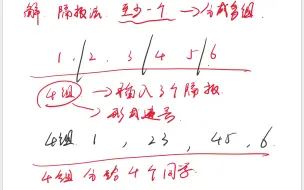 解 隔板法 至少一个 → 分成多组.
1 . 2 . 3 4 5 6
4组 → 插入3个隔板
→
4组 1 , 23 , 45 , 6.
4组分给4个同学.